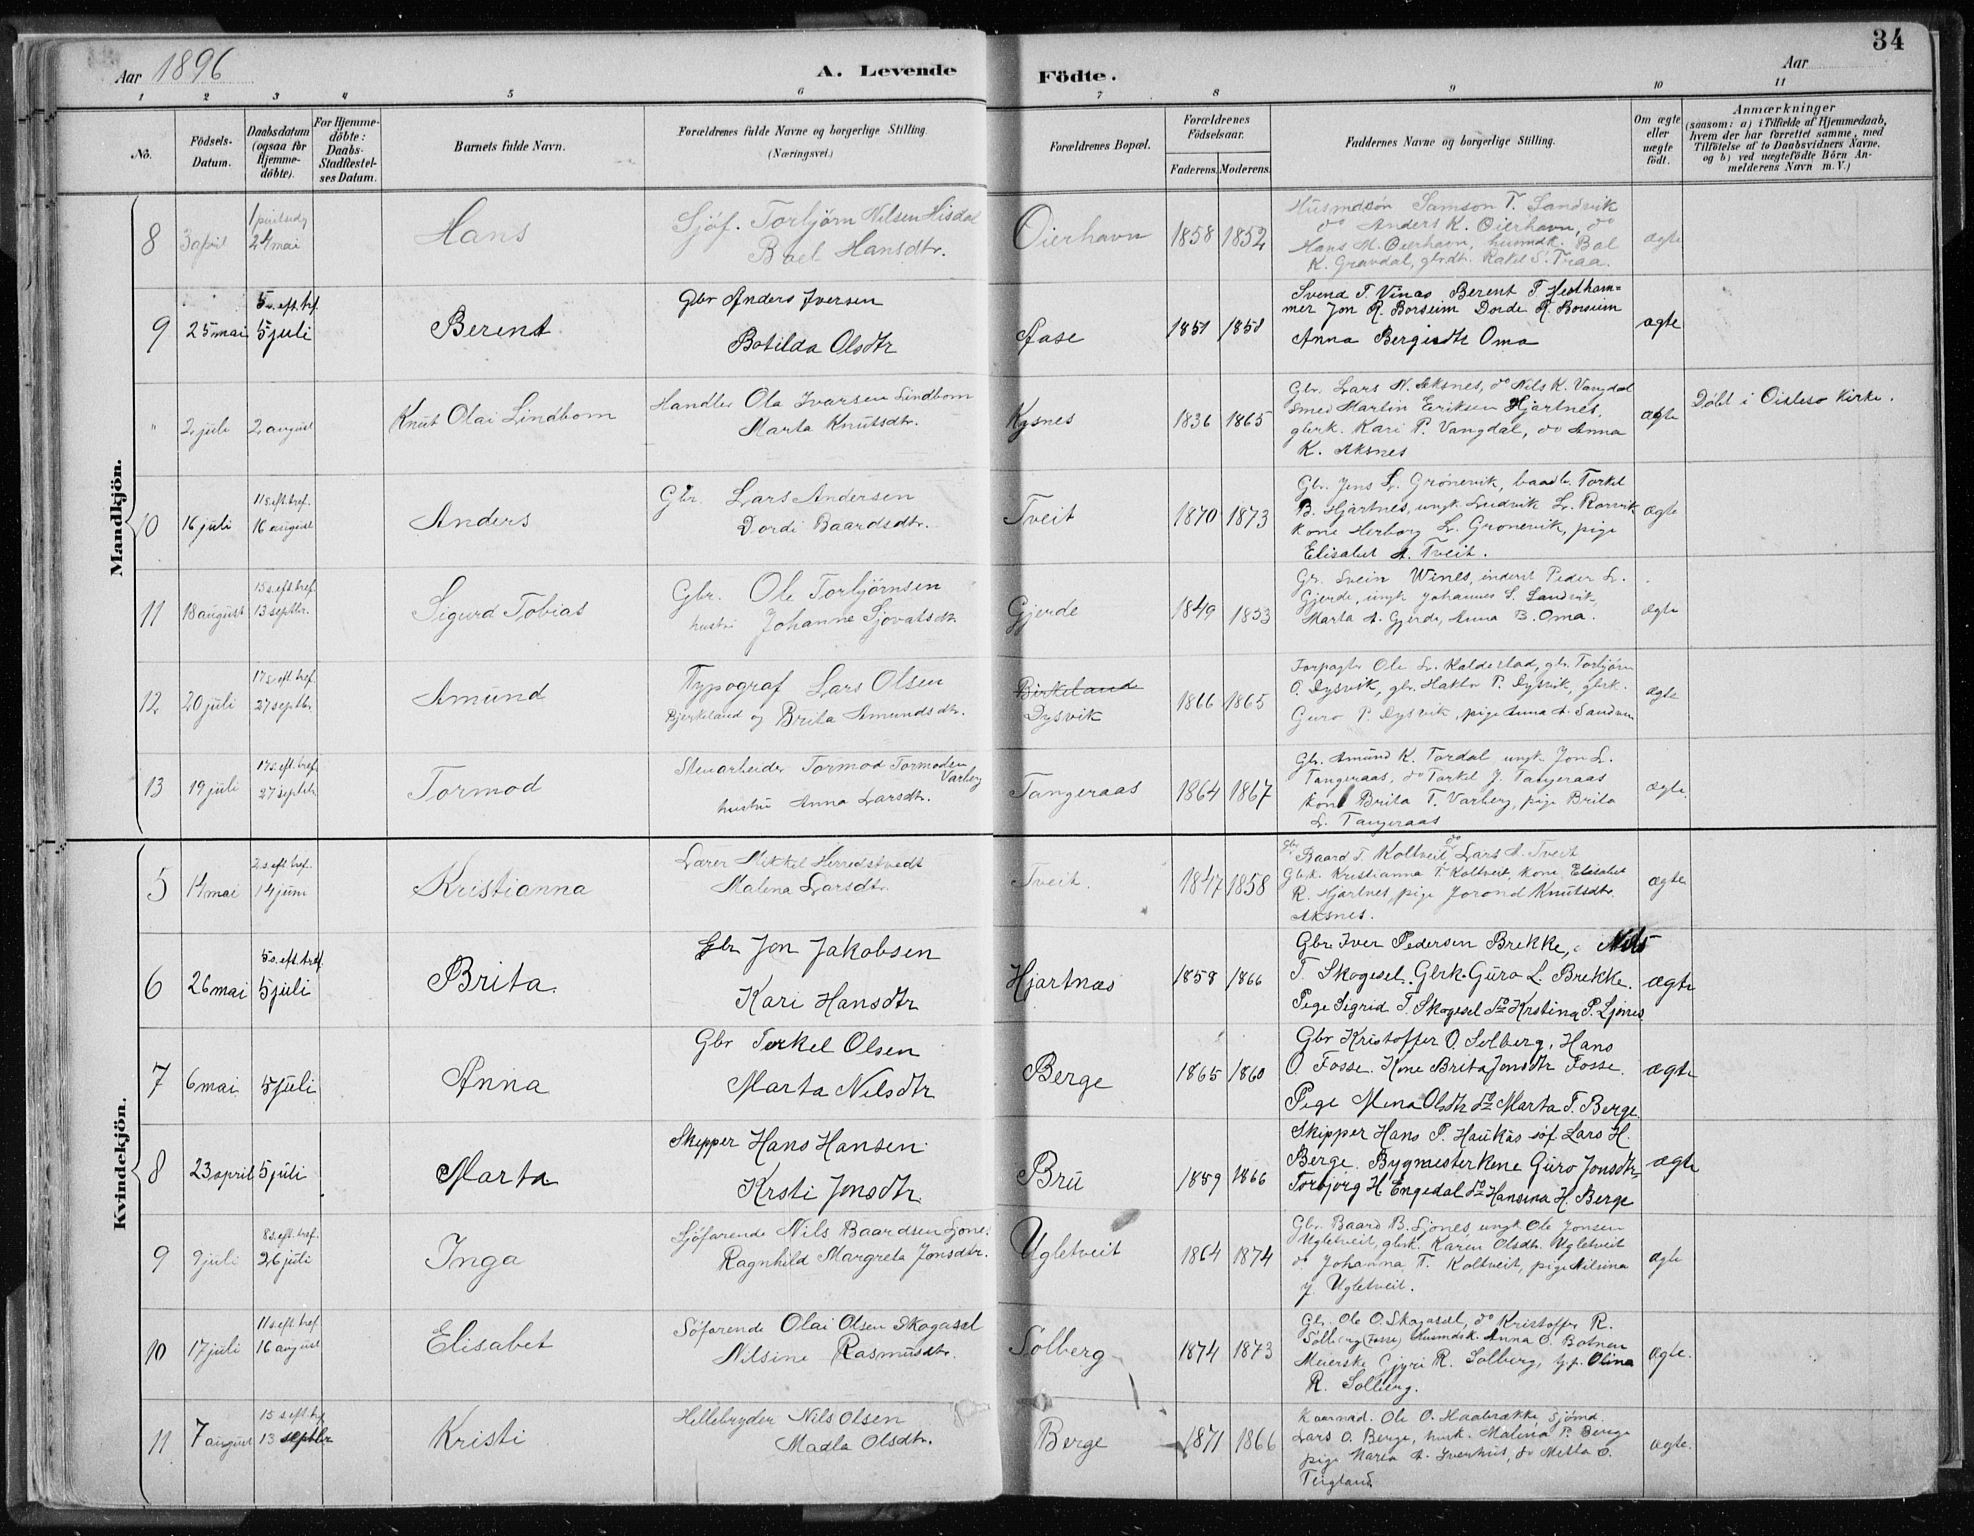 34
Aar 1896
A. Levende Födte.
Aar
1 2 3 4 5 6 7 8 9 10 11
No.
Födsels-Datum.
Daabsdatum (ogsaa for Hjemme-döbte).
For Hjemme-döbte: Daabs-Stadfæstel-ses Datum.
Barnets fulde Navn.
Forældrenes fulde Navne og borgerlige Stilling. (Næringsvei.)
Forældrenes Bopæl.
Forældrenes Födselsaar.
Faderens. Moderens.
Faddernes Navne og borgerlige Stilling.
Om ægte eller uægte födt.
Anmærkninger
(saasom: a) i Tilfælde af Hjemmedaab,
hvem der har forrettet samme, med
Tilföielse af to Daabsvidners Navne,
og b) ved uægtefödte Börn An-
melderens Navn m. V.)
Mandkjön.
8 3 april 24 mai Hans Sjöf. Torbjörn Nilsen Hisdal
Boel Hansdtr. Oierhavn 1858 1852 ægte
Husmdsön Samson T. Sandvik
do Anders K. Oierhavn, do
Hans M. Oierhavn, husmdk. Bol
K. Gravdal, gbrdtr. Rakel S. Traa.
9 25 mai 5 s. eft. tref. 5 juli Berent Gbr Anders Iversen
Botilda Olsdtr Aase 1851 1858 ægte
Svend T. Vinæs Berent T. Hestham=
mer Jon R. Borseim Dorde R. Borseim
Anna Bergisdtr Oma
" 2 juli 2 august Knut Olai Lindbom Handler Ola Ivarsen Lindbom
Marta Knutsdtr. Kysnes 1836 1865 ægte Döbt i Oistesø Kirke.
Gbr. Lars N. Aksnes, do Nils K. Vangdal
smed Martin Eriksen Hjartnes,
gbrk. Kari P. Vangdal, do Anna
K. Aksnes
10 16 juli 11 s. eft. tref. 16 august Anders Gbr. Lars Andersen
Dordi Baardsdtr. Tveit 1870 1873 ægte
Gbr. Jens L. Grønevik, baadb. Torkel
B. Hjartnes, ungk. Ludvik L. Rørvik
kone Herborg L. Grønevik, pige
Elisabet A. Tveit.
11 18 august 15 s. eft. tref. 13 septbr. Sigurd Tobias Gbr. Ole Torbjørnsen
hustru Johanne Sjovatsdtr Gjerde 1849 1853 ægte
Gbr. Svein Wines, inderst Peder L.
Gjerde, ungk Johannes S. Sandvik
Marta A. Gjerde, Anna B. Oma.
12 20 juli 17 s. eft. tref. 27 septbr. Amund Typograf Lars Olsen
Bjerkeland og Brita Amundsdtr. Birkeland
Dysvik 1866 1865 ægte
Forpagter Ole L. Kaldestad, gbr. Torbjörn
O. Dysvik, gbr. Haktor P. Dysvik, gbrk.
Guro P. Dysvik, pige Anna A. Sandven
13 19 juli 17 s. eft. tref. 27 septbr Tormod Stenarbeider Tormod Tormodsen
Varberg
hustru Anna Larsdtr. Tangeraas 1864 1867 ægte.
Gbr. Amund K. Tordal ungk. Jon L.
Tangeraas, do Torkel J. Tangeraas
kone Brita T. Varberg, pige Brita
L. Tangeraas
Kvindekjön.
5 14 mai 2 s. eft. tref. 14 juni Kristianna Lærer Mikkel Herredstvedt
Malena Larsdtr. Tveit. 1847 1858 ægte
Gbr. Baard T. Koltveit, do Lars A. Tveit
Gbrk. Kristianna T. Koltveit, kone Elisabet
R. Hjartnes, pige Jorond Knutsdtr.
Aksnes.
6 26 mai 5 s. eft. tref. 5 juli Brita. Gbr Jon Jakobsen
Kari Hansdtr Hjartnæs 1858 1866 ægte
Gbr. Iver Pedersen Brekke, Nils
T. Skogesel. Gbrk. Guro L. Brekke.
Pige Sigrid T. Skogesel do Kristina P. Ljones
7 6 mai 5 juli Anna Gbr Torkel Olsen
Marta Nilsdtr Berge 1865 1860 ægte
Gbr Kristoffer O. Solberg. Hans
O. Fosse. Kone Brita Jonsdtr Fosse.
Pige Mena Olsdtr do Marta T. Berge
8 23 april 5 juli Marta Skipper Hans Hansen
Krsti Jonsdtr Bru 1859 1866 ægte
Skipper Hans P. Haukås söf. Lars H.
Berge. Bygmesterkone Guro Jonsdtr
Torbjorg H. Engedal do Hansina H. Berge
9 9 juli 8 s. eft. tref. 26 juli Inga Sjøfarende Nils Baardsen Ljones
Ragnhild Margreta Jonsdtr. Ugletveit 1864 1874 ægte
Gbr. Baard B. Ljønes, ungk. Ole Jonsen
Ugletveit, gbrk. Karen Olsdtr. Ugletveit
do Johanna T. Koltveit, pige Nilsina
J. Ugletveit.
10 17 juli 11 s. eft. tref. 16 august Elisabet Söfarende Olai Olsen Skogasæl
Nilsine Rasmusdtr. Sølberg 1874 1873 ægte.
Gbr. Ole O. Skogasæl, do Kristoffer R.
Solberg (Fosse) Husmdk. Anna O. Botnen
Meierske Gjyri R. Solberg, Olina
R. Solberg.
11 7 august 15 s. eft. tref 13 septbr Kristi Hellebryder Nils Olsen
Madla Olsdtr. Berge 1871 1866 ægte.
Kaarmd. Ole O. Haabrække, sjömd.
Lars O. Berge, husk. Malina P. Berge
pige Marta A. Iverhus, do Metta O.
Teigland